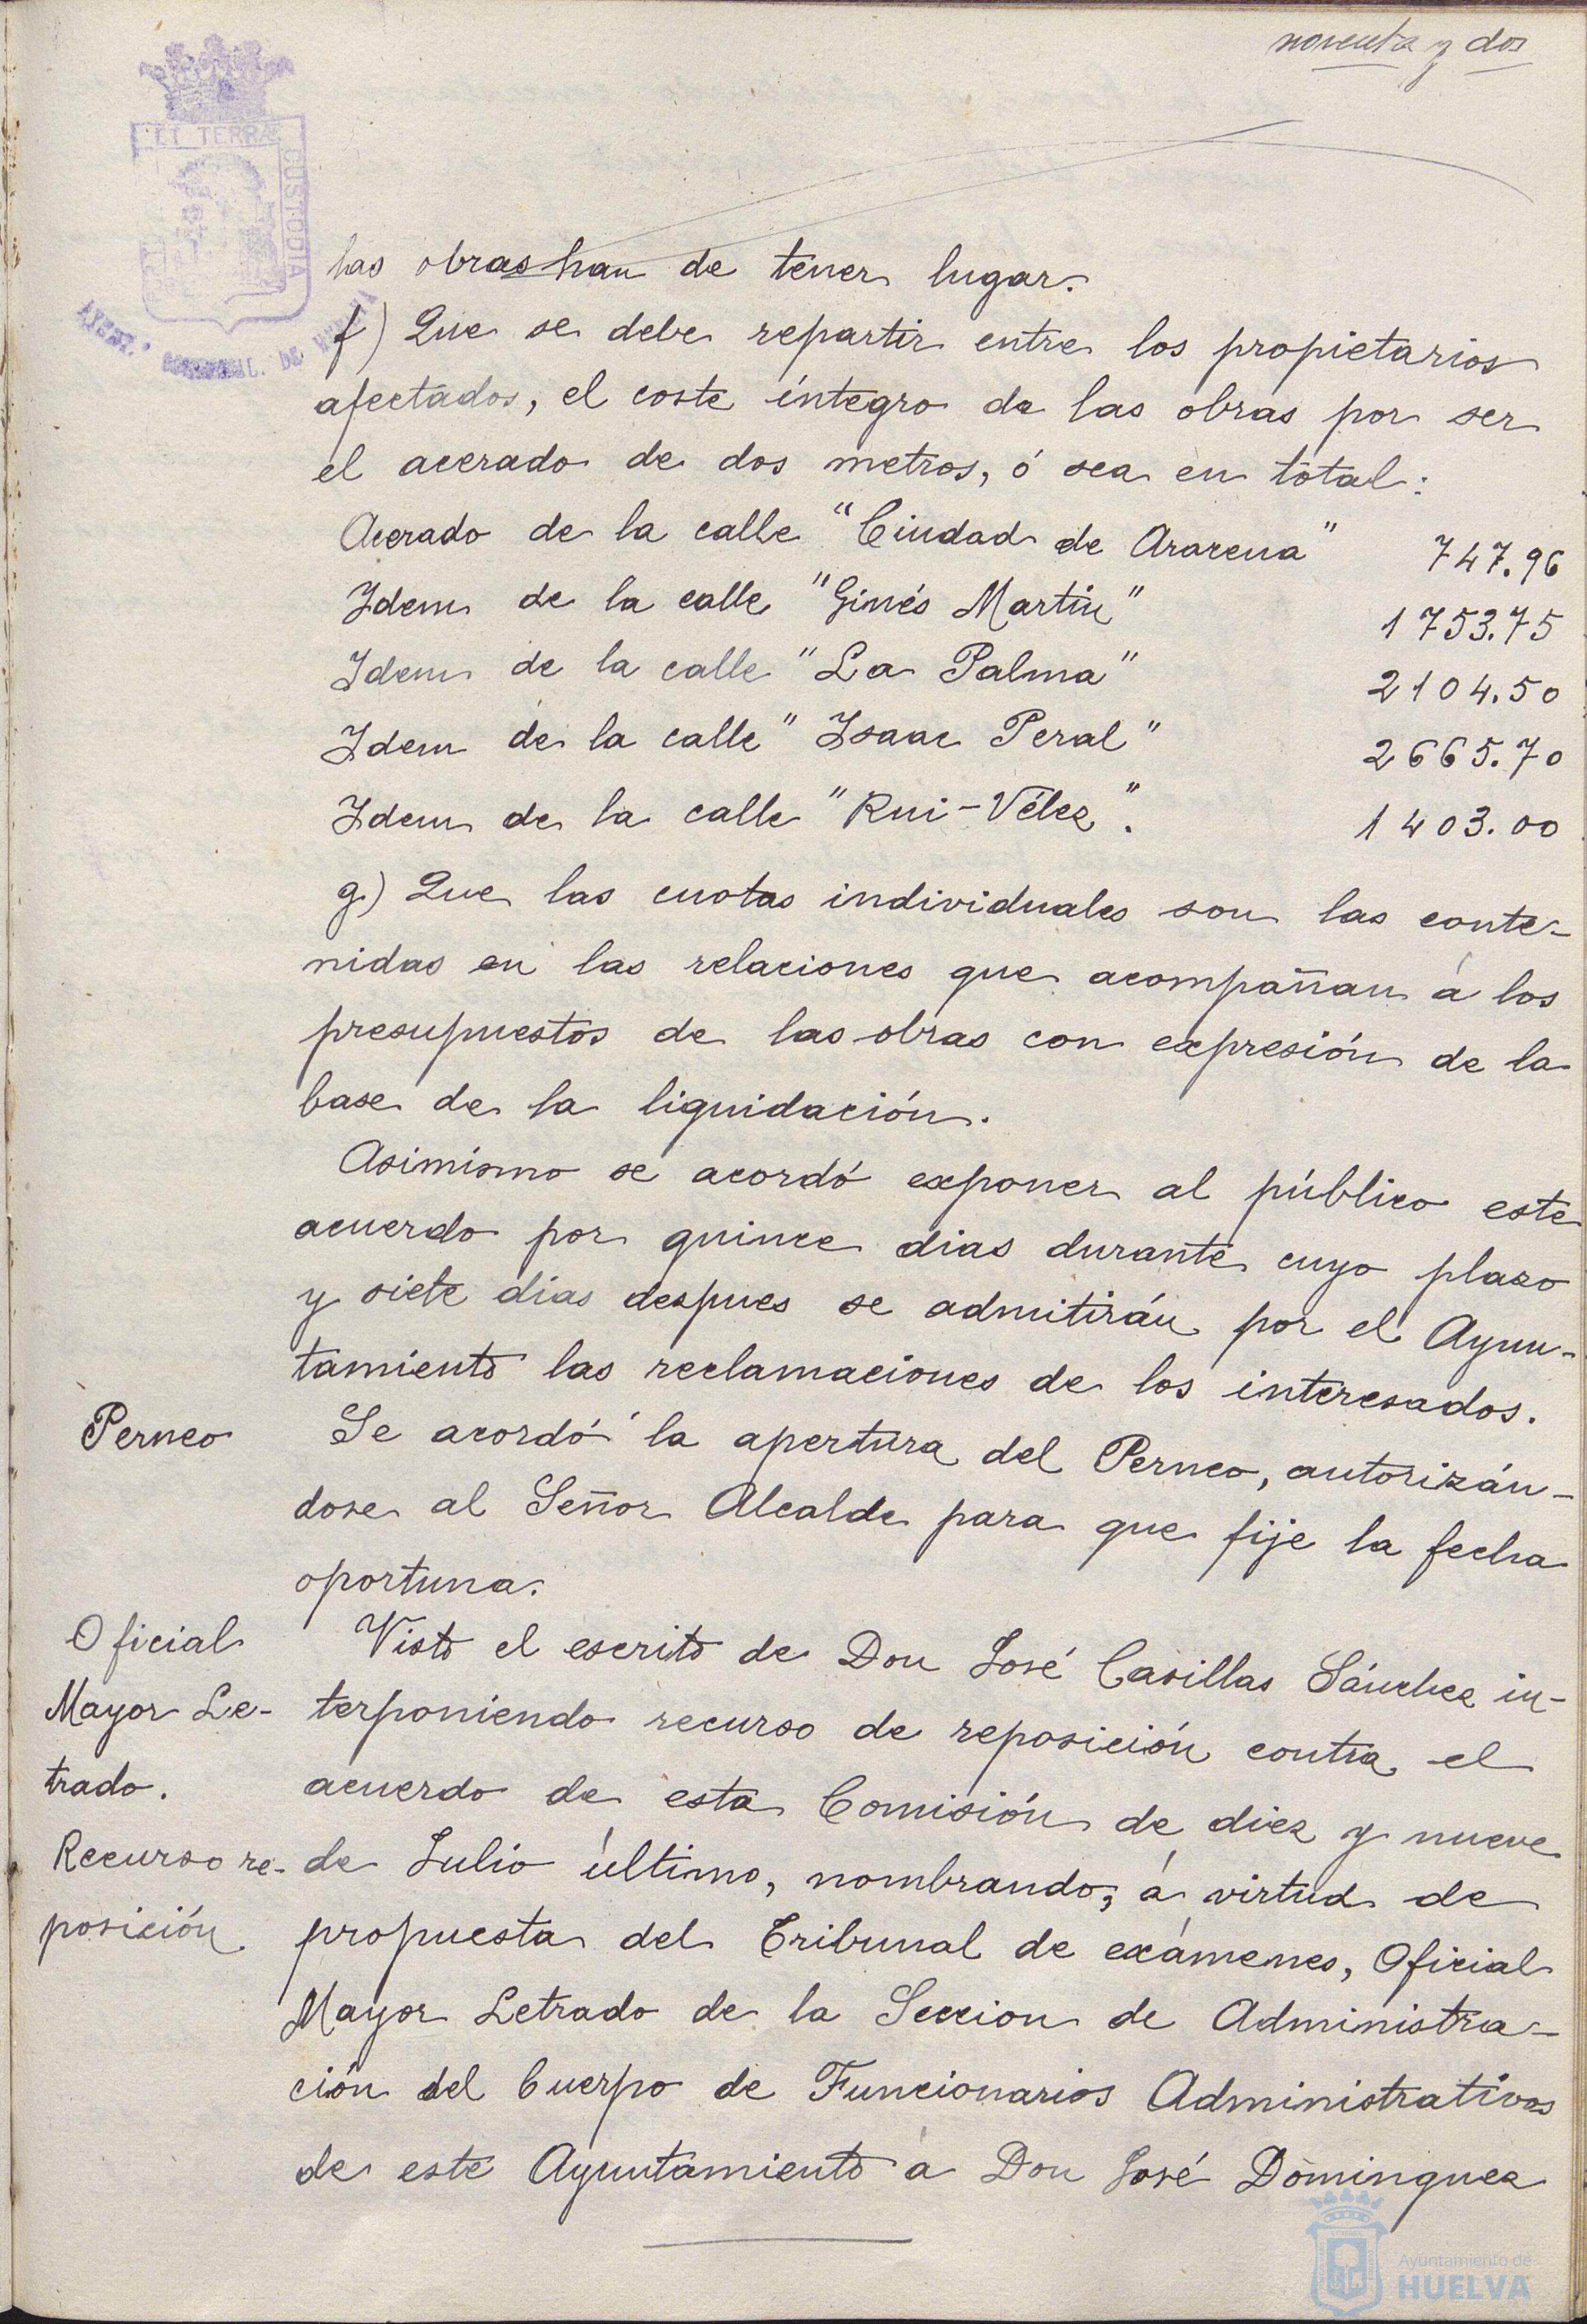 noventa y dos
ET TERRÆ
CUSTODIA
has obras han de tener lugar.
f) Que se debe repartir entre los propietarios
afectados, el coste íntegro de las obras por ser
el acerado de dos metros, ó sea en total:
Acerado de la calle "Ciudad de Aracena" 747.96
Idem de la calle "Ginés Martin" 1753.75
Idem de la calle "La Palma" 2104.50
Idem de la calle "Isaac Peral" 2665.70
Idem de la calle "Rui-Vélez". 1403.00
g) Que las cuotas individuales son las conte-
nidas en las relaciones que acompañan á los
presupuestos de las obras con expresión de la
base de la liquidación.
Asimismo se acordó exponer al público este
acuerdo por quince dias durante cuyo plazo
y siete dias despues se admitirán por el Ayun-
tamiento las reclamaciones de los interesados.
Perneo Se acordó la apertura del Perneo, autorizán-
dose al Señor Alcalde para que fije la fecha
oportuna.
Oficial Visto el escrito de Don José Casillas Sánchez in-
Mayor Le- terponiendo recurso de reposición contra el
trado. acuerdo de esta Comisión de diez y nueve
Recurso re- de Julio último, nombrando, á virtud de
posición propuesta del Tribunal de exámenes, Oficial
Mayor Letrado de la Seccion de Administra-
ción del Cuerpo de Funcionarios Administrativos
de este Ayuntamiento á Don José Dominguez
Ayuntamiento de
HUELVA